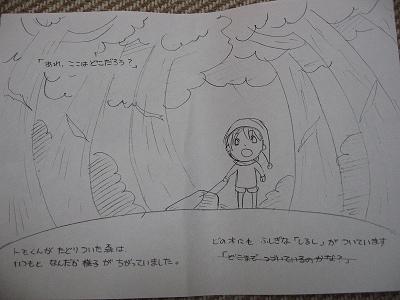 「あれ、ここはどこだろう？」
トモくんが たどりついた森は
いつもと なんだか様子が ちがっていました。
どの木にも ふしぎな「しるし」が ついています
「どこまで つづいているのかな？」